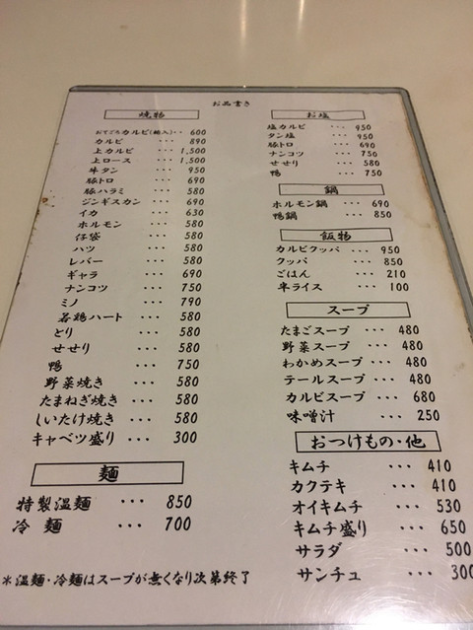 お品書き
焼物
おてごろカルビ(輸入)・・ 600
カルビ ・・・ 890
上カルビ ・・・ 1,500
上ロース ・・・ 1,500
牛タン ・・・ 950
豚トロ ・・・ 690
豚ハラミ ・・・ 580
ジンギスカン ・・・ 690
イカ ・・・ 630
ホルモン ・・・ 580
・・・ 580
ハツ ・・・ 580
レバー ・・・ 580
ギャラ ・・・ 690
ナンコツ ・・・ 750
ミノ ・・・ 790
若鶏ハート ・・・ 580
とり ・・・ 580
せせり ・・・ 580
鴨 ・・・ 750
野菜焼き ・・・ 580
たまねぎ焼き ・・・ 580
しいたけ焼き ・・・ 580
キャベツ盛り ・・・ 300
麺
特製温麺 ・・・ 850
冷麺 ・・・ 700
*温麺・冷麺はスープが無くなり次第終了
お塩
塩カルビ ・・・ 950
タン塩 ・・・ 950
豚トロ ・・・ 690
ナンコツ ・・・ 750
せせり ・・・ 580
鴨 ・・・ 750
鍋
ホルモン鍋 ・・・ 690
鴨鍋 ・・・ 850
飯物
カルビクッパ ・・・ 950
クッパ ・・・ 850
ごはん ・・・ 210
半ライス ・・・ 100
スープ
たまごスープ ・・・ 480
野菜スープ ・・・ 480
わかめスープ ・・・ 480
テールスープ ・・・ 480
カルビスープ ・・・ 680
味噌汁 ・・・ 250
おつけもの・他
キムチ ・・・ 410
カクテキ ・・・ 410
オイキムチ ・・・ 530
キムチ盛り ・・・ 650
サラダ ・・・ 500
サンチュ ・・・ 300